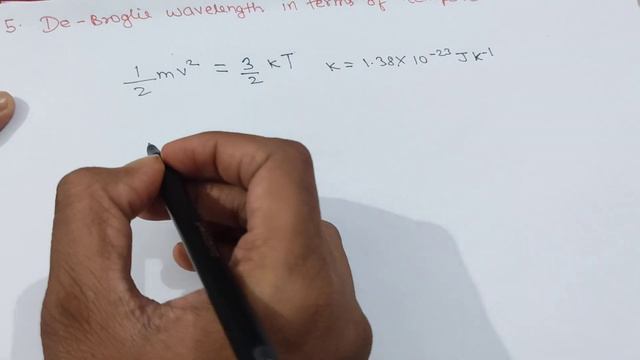 5. De-Broglie wavelength in terms of
1/2 mv² = 3/2 kT K = 1.38 × 10⁻²³ J K⁻¹